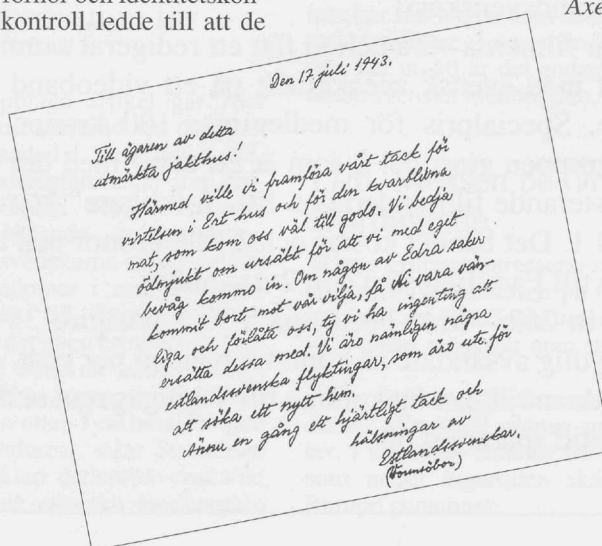 kontroll ledde till att de
Den 17 juli 1943.
Till ägaren av detta
utmärkta jakthus!
Härmed ville vi framföra vårt tack för
vistelsen i Ert hus och för den kvarblivna
mat, som kom oss väl till godo. Vi bedja
ödmjukt om ursäkt för att vi med eget
bevåg kommo in. Om någon av Edra saker
kommit bort mot vår vilja, få Ni vara vän-
liga och förlåta oss, ty vi ha ingenting att
ersätta dessa med. Vi äro nämligen några
estlandssvenska flyktingar, som äro ute för
att söka ett nytt hem.
Ännu en gång ett hjärtligt tack och
hälsningar av
Estlandssvenskar.
(Founsöbor)